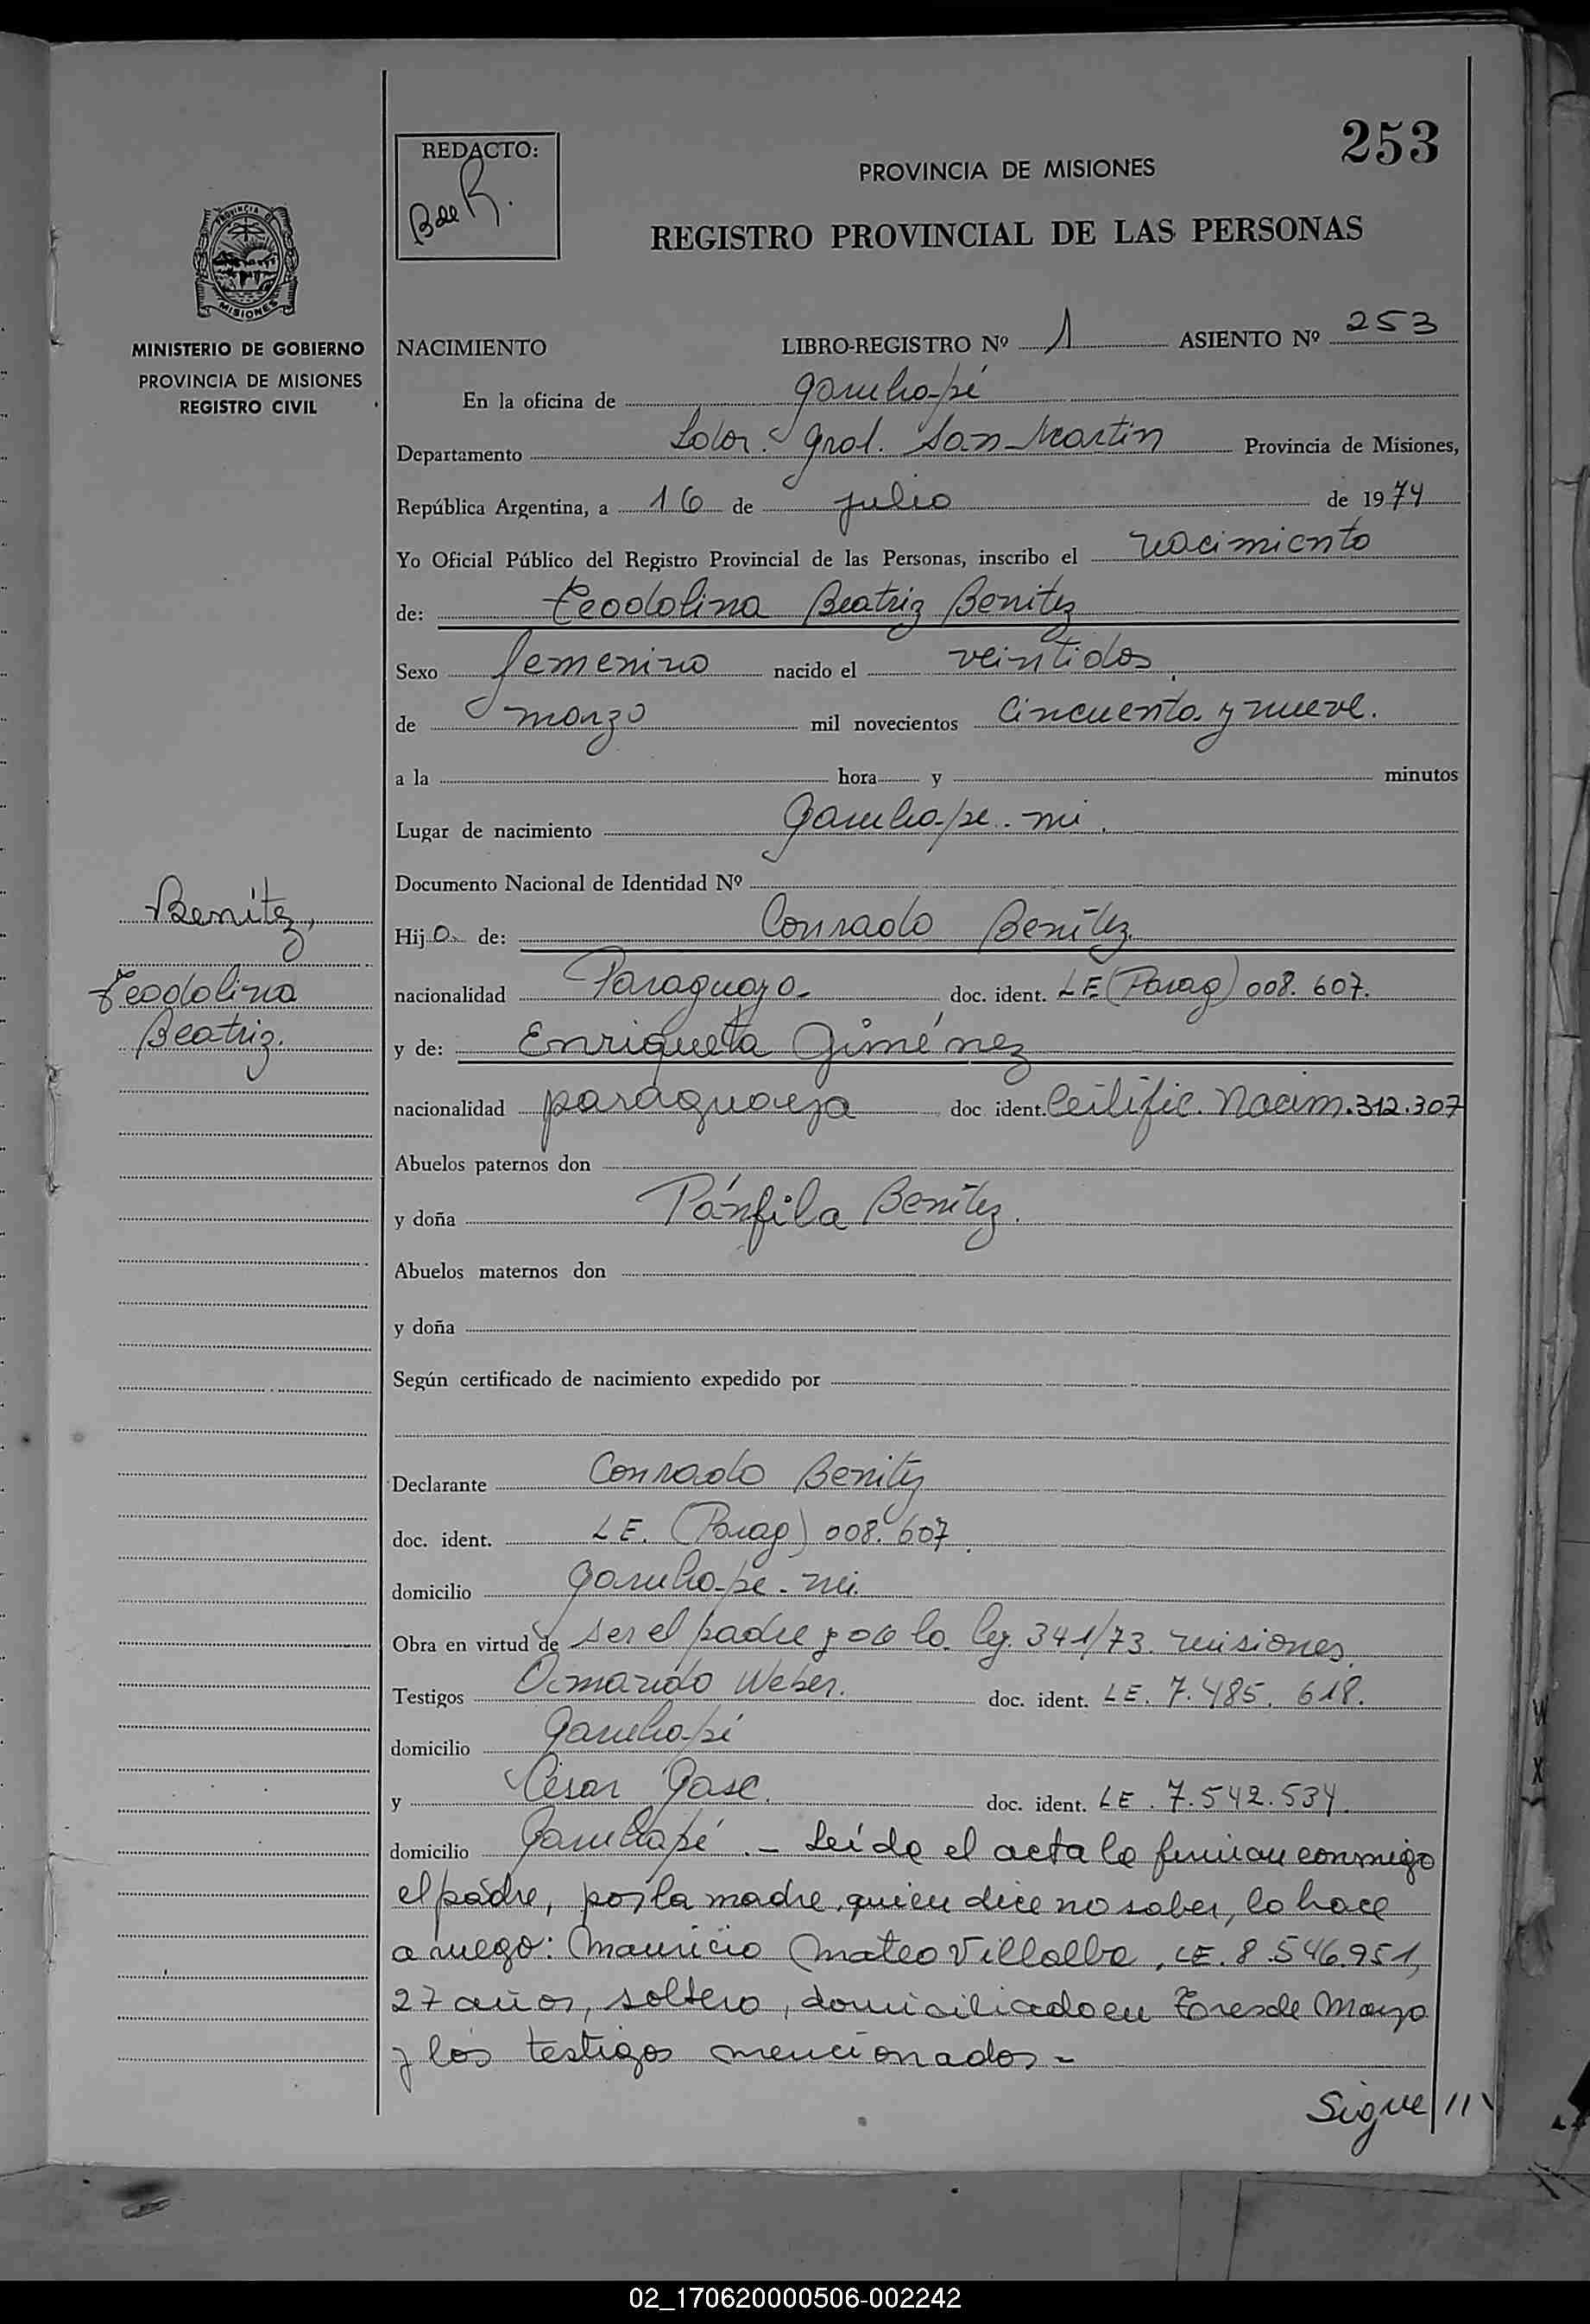 253
REDACTO:
B de R.
PROVINCIA DE MISIONES
REGISTRO PROVINCIAL DE LAS PERSONAS
PROVINCIA DE
MISIONES
MINISTERIO DE GOBIERNO
PROVINCIA DE MISIONES
REGISTRO CIVIL
NACIMIENTO LIBRO-REGISTRO Nº 1 ASIENTO Nº 253
En la oficina de Garuhapé
Departamento Ldor. Gral. San Martín Provincia de Misiones,
República Argentina, a 16 de julio de 1974
Yo Oficial Público del Registro Provincial de las Personas, inscribo el nacimiento
de: Teodolina Beatriz Benitez
Sexo femenino nacido el veintidos
de marzo mil novecientos cincuenta y nueve.
a la hora y minutos
Lugar de nacimiento Garuhape-mi.
Documento Nacional de Identidad Nº
Benítez,
Teodolina
Beatriz.
Hija de: Conrado Benítez
nacionalidad Paraguaya doc. ident. LE (Parag) 008.607.
y de: Enriqueta Giménez
nacionalidad paraguaya doc. ident. Certific. Nacim. 312.307
Abuelos paternos don
y doña Pánfila Benítez.
Abuelos maternos don
y doña
Según certificado de nacimiento expedido por
Declarante Conrado Benitez
doc. ident. LE. (Parag) 008.607.
domicilio Garuhape-mi.
Obra en virtud de ser el padre y la ley. 341/73. misiones.
Testigos Armando Weber. doc. ident. LE. 7.485.618.
domicilio Garuhapé
y César doc. ident. LE. 7.542.534.
domicilio Garuhapé.- Leída el acta la firman conmigo
el padre, por la madre, quien dice no saber, lo hace
a ruego: Mauricio Mateo Villalba, LE. 8.546.951,
27 años, soltero, domiciliado en Tres de Mayo
y los testigos mencionados-
Sigue ///
02_170620000506-002242